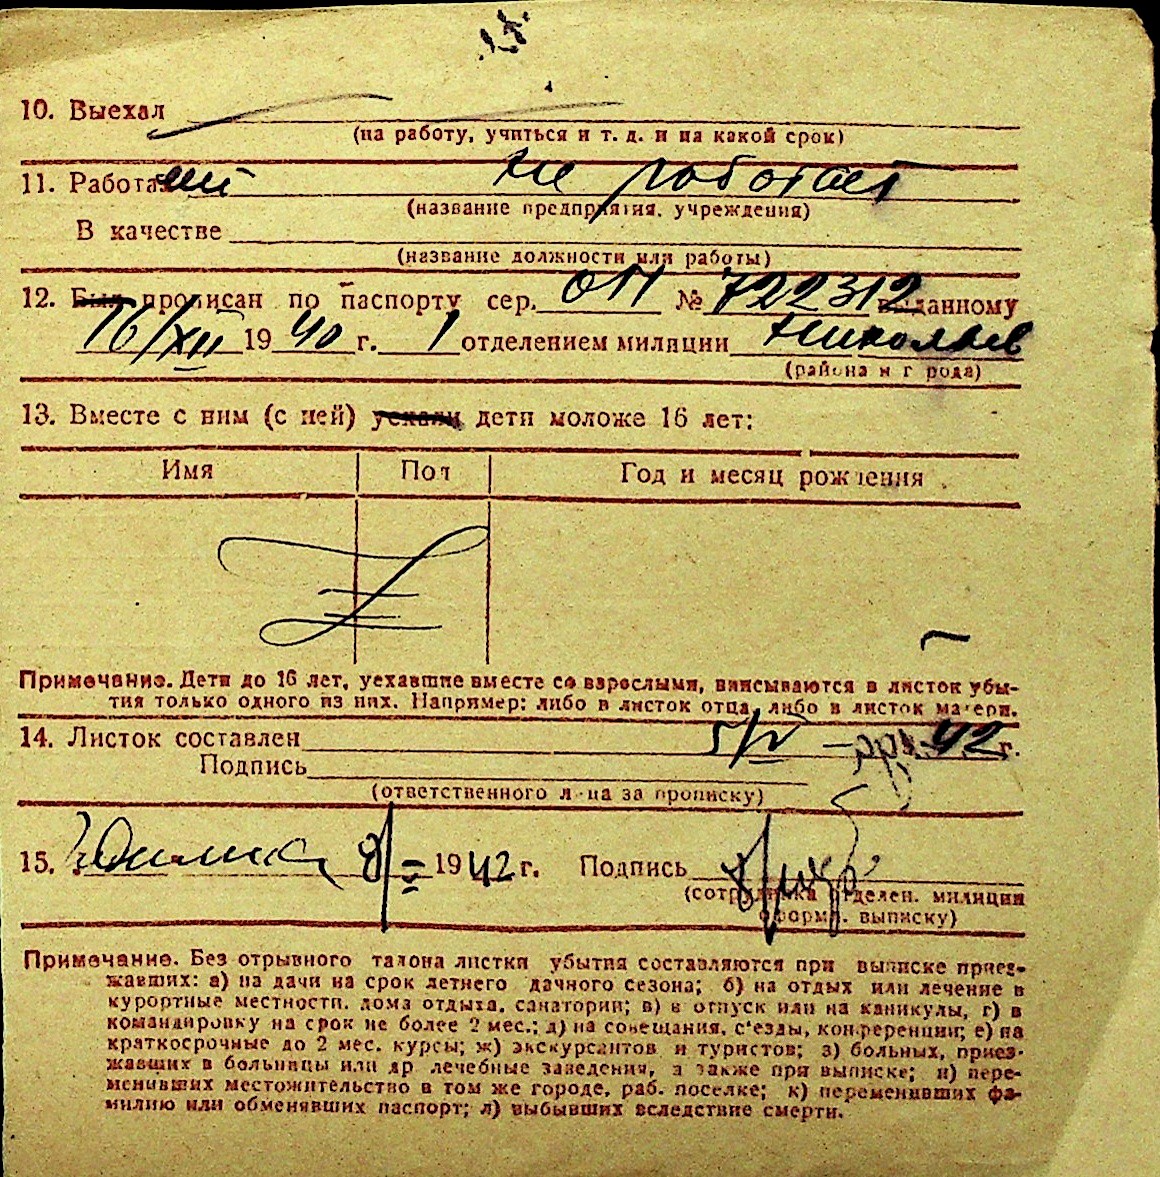 10. Выехал
(на работу, учиться и т. д. и на какой срок)
11. Работает не работает
(название предприятия, учреждения)
В качестве
(название должности или работы)
12. Был прописан по паспорту сер. ОП № 722312 выданному
16/XII 1940 г. 1 отделением милиции Николаев
(района и города)
13. Вместе с ним (с ней) уехали дети моложе 16 лет:
Имя Пол Год и месяц рождения
Примечание. Дети до 16 лет, уехавшие вместе со взрослыми, вписываются в листок убы-
тия только одного из них. Например: либо в листок отца, либо в листок матери.
14. Листок составлен 5/V 42 г.
Подпись
(ответственного лица за прописку)
15. 8/V 1942 г. Подпись
(сотрудника отделен. милиции
оформл. выписку)
Примечание. Без отрывного талона листки убытия составляются при выписке приез-
жавших: а) на дачи на срок летнего дачного сезона; б) на отдых или лечение в
курортные местности, дома отдыха, санатории; в) в отпуск или на каникулы, г) в
командировку на срок не более 2 мес.; д) на совещания, с'езды, конференции; е) на
краткосрочные до 2 мес. курсы; ж) экскурсантов и туристов; з) больных, приез-
жавших в больницы или др лечебные заведения, а также при выписке; и) пере-
менивших местожительство в том же городе, раб. поселке; к) переменивших фа-
милию или обменявших паспорт; л) выбывших вследствие смерти.